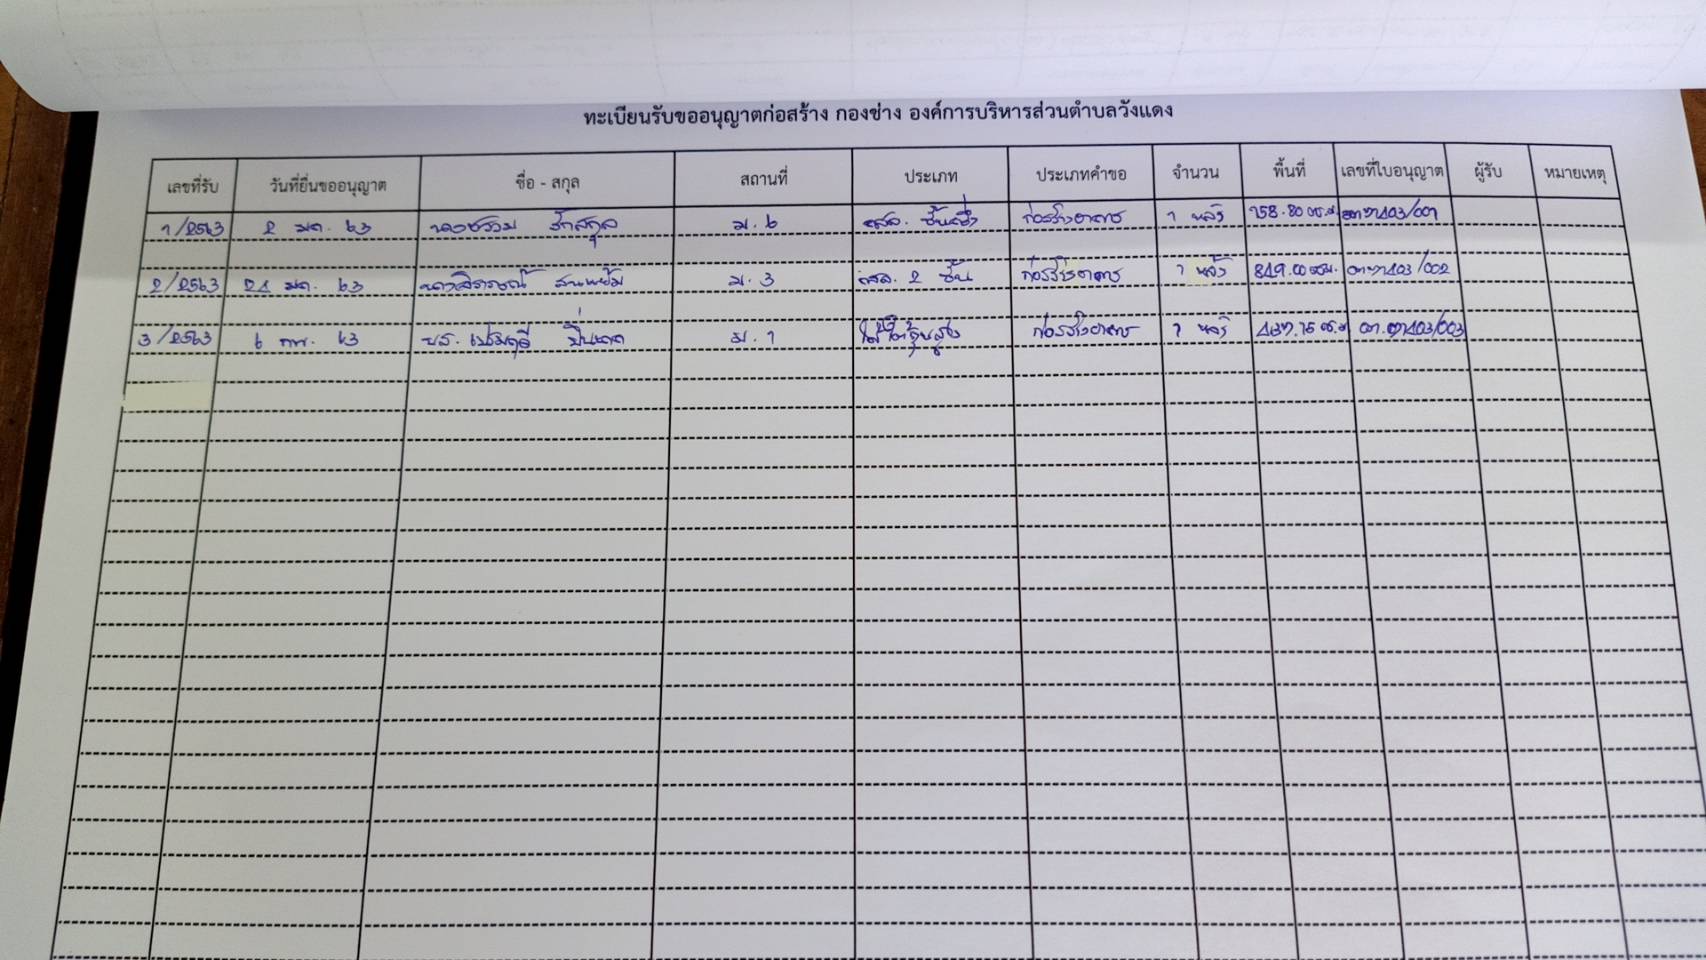 ทะเบียนรับขออนุญาตก่อสร้าง กองช่าง องค์การบริหารส่วนตำบลวังแดง
เลขที่รับ วันที่ยื่นขออนุญาต ชื่อ - สกุล สถานที่ ประเภท ประเภทคำขอ จำนวน พื้นที่ เลขที่ใบอนุญาต ผู้รับ หมายเหตุ
1/2563 2 มค. 63 ม. 6 คสล. ก่อสร้างอาคาร 1 หลัง 158.80 ตร.ม
2/2563 21 มค. 63 ม. 3 คสล. 2 ชั้น ก่อสร้างอาคาร 1 หลัง 849.00 ตรม.
3/2563 6 กพ. 63 ม. 1 ก่อสร้างอาคาร 1 หลัง